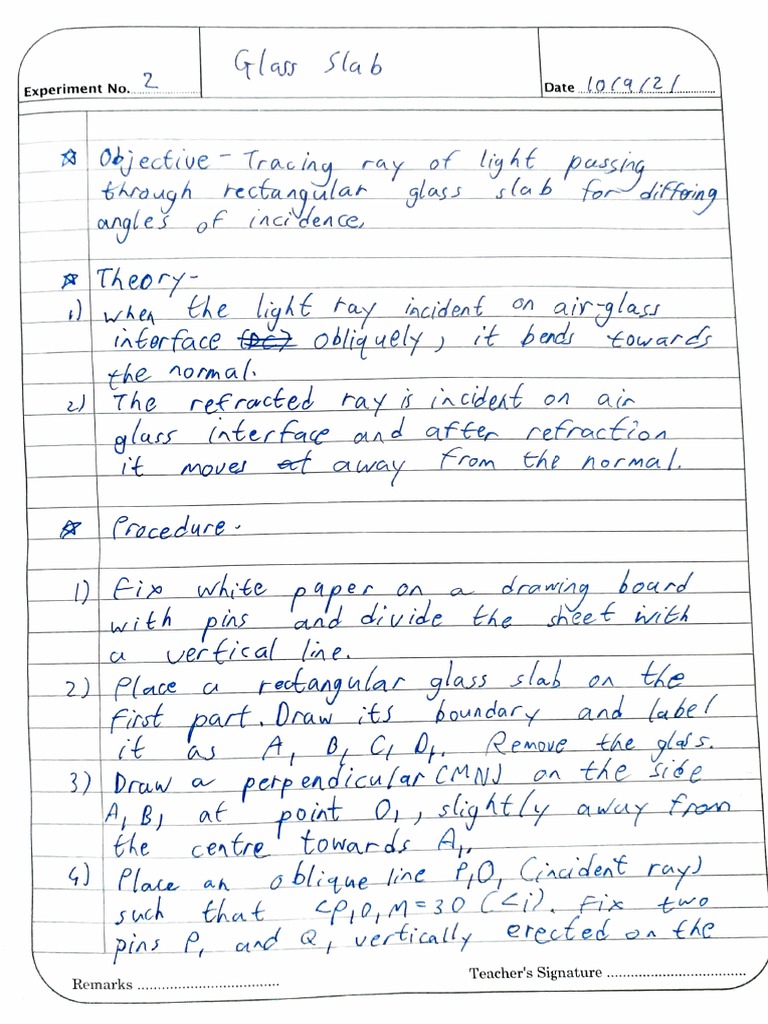 Glass Slab
Experiment No. 2
Date 10/9/21
☆ Objective - Tracing ray of light passing
through rectangular glass slab for differing
angles of incidence.
☆ Theory-
1) When the light ray incident on air-glass
interface obliquely, it bends towards
the normal.
2) The refracted ray is incident on air
glass interface and after refraction
it moves away from the normal.
☆ Procedure.
1) Fix white paper on a drawing board
with pins and divide the sheet with
a vertical line.
2) Place a rectangular glass slab on the
first part. Draw its boundary and label
it as A₁ B₁ C₁ D₁. Remove the glass.
3) Draw a perpendicular (MN) on the side
A₁ B₁ at point O₁, slightly away from
the centre towards A₁.
4) Place an oblique line P₁O₁ (incident ray)
such that <P₁O₁M = 30 (<i). Fix two
pins P₁ and Q₁ vertically erected on the
Remarks
Teacher's Signature